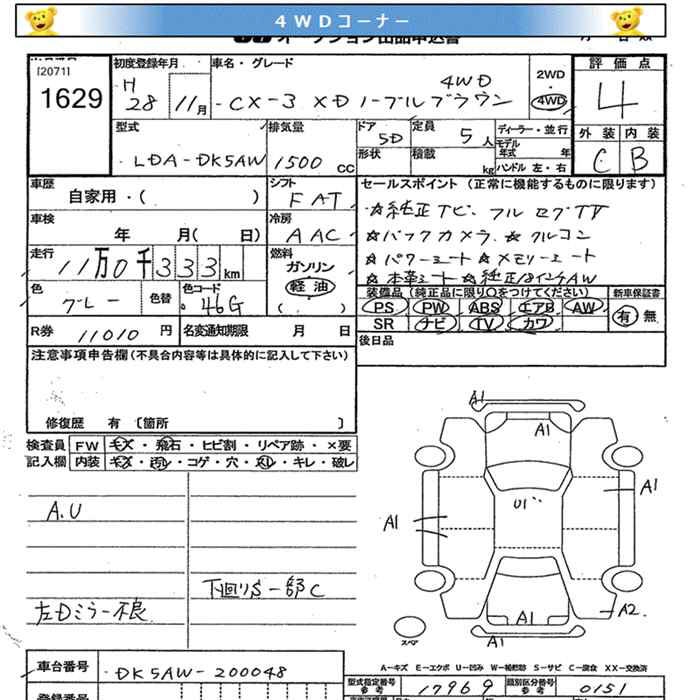 4WDコーナー
オークション出品申込書
[2071]
1629
初度登録年月
H
28 11月
車名・グレード
4WD
CX-3 XD ノーブルブラウン
2WD
・
4WD
評価点
4
型式
LDA-DK5AW
排気量
1500 CC
ドア
5D
定員
5人
形状
積載
kg
ディーラー・並行
モデル年式 年
ハンドル 左・右
外装 内装
C B
車歴
自家用・( )
シフト
FAT
車検
年 月( 日)
冷房
AAC
走行
11万0千333km
燃料
ガソリン
軽油
( )
色
グレー
色替
色コード
46G
R券
11010円
名変通知期限 月 日
セールスポイント(正常に機能するものに限ります)
☆純正ナビ、フルセグTV
☆バックカメラ、☆クルコン
☆パワーシート ☆メモリーシート
☆本革シート ☆純正18インチAW
装備品(純正品に限り○をつけてください)
PS PW ABS エアB AW
SR ナビ TV カワ
新車保証書
有 無
後日品
注意事項申告欄(不具合内容等は具体的に記入して下さい)
修復歴 有 [箇所 ]
検査員記入欄
FW キズ・飛石・ヒビ割・リペア跡・×要
内装 キズ・汚レ・コゲ・穴・スレ・キレ・破レ
A.U
下回りS一部C
左Dミラー不良
A1
A1
A1
Uパ
A1
A1
A1
A2
スペア
A-キズ E-エクボ U-凹み W-補修跡 S-サビ C-腐食 XX-交換済
車台番号
DK5AW-200048
登録番号
型式指定番号
参考
17969
類別区分番号
参考
0151